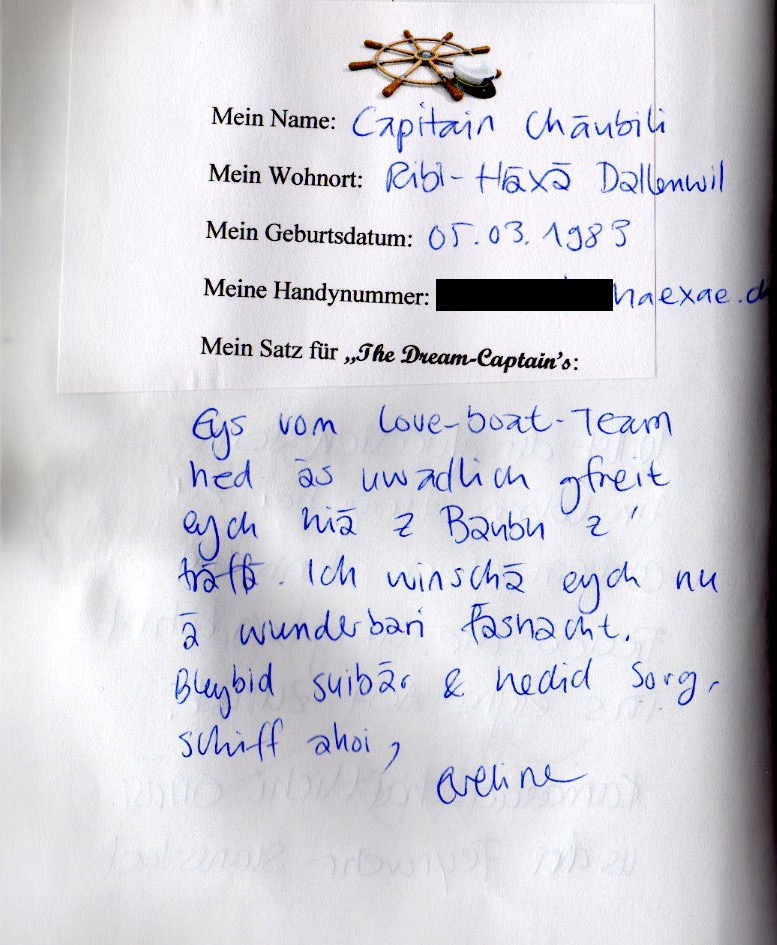 Mein Name: Capitain Chäubili
Mein Wohnort: Ribi-Häxä Dallenwil
Mein Geburtsdatum: 05.03.1983
Meine Handynummer: haexae.c
Mein Satz für „The Dream-Captain's:
Eys vom Love-boat-Team
hed äs uwadlich gfreit
eych hiä z Banbn z'
träffä. Ich winschä eych nu
ä wunderbari Fasnacht.
Bleybid suibär & hedid Sorg,
schiff ahoi,
Eveline